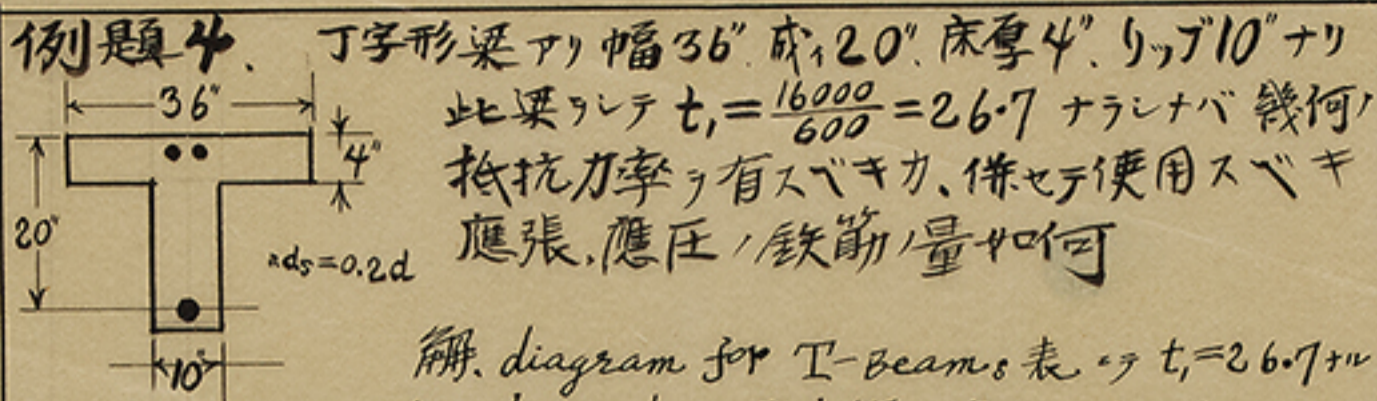 例題4. 丁字形梁アリ幅36". 成イ20". 床厚4". リップ10"ナリ
此梁ヲシテ t₁=16000/600=26.7 ナラシナバ 幾何ノ
抵抗力率ヲ有スベキカ、併セテ使用スベキ
應張、應圧ノ鉄筋ノ量如何
36"
4"
20"
ds=0.2d
10"
解. diagram for T-Beams 表ニテ t₁=26.7ナル